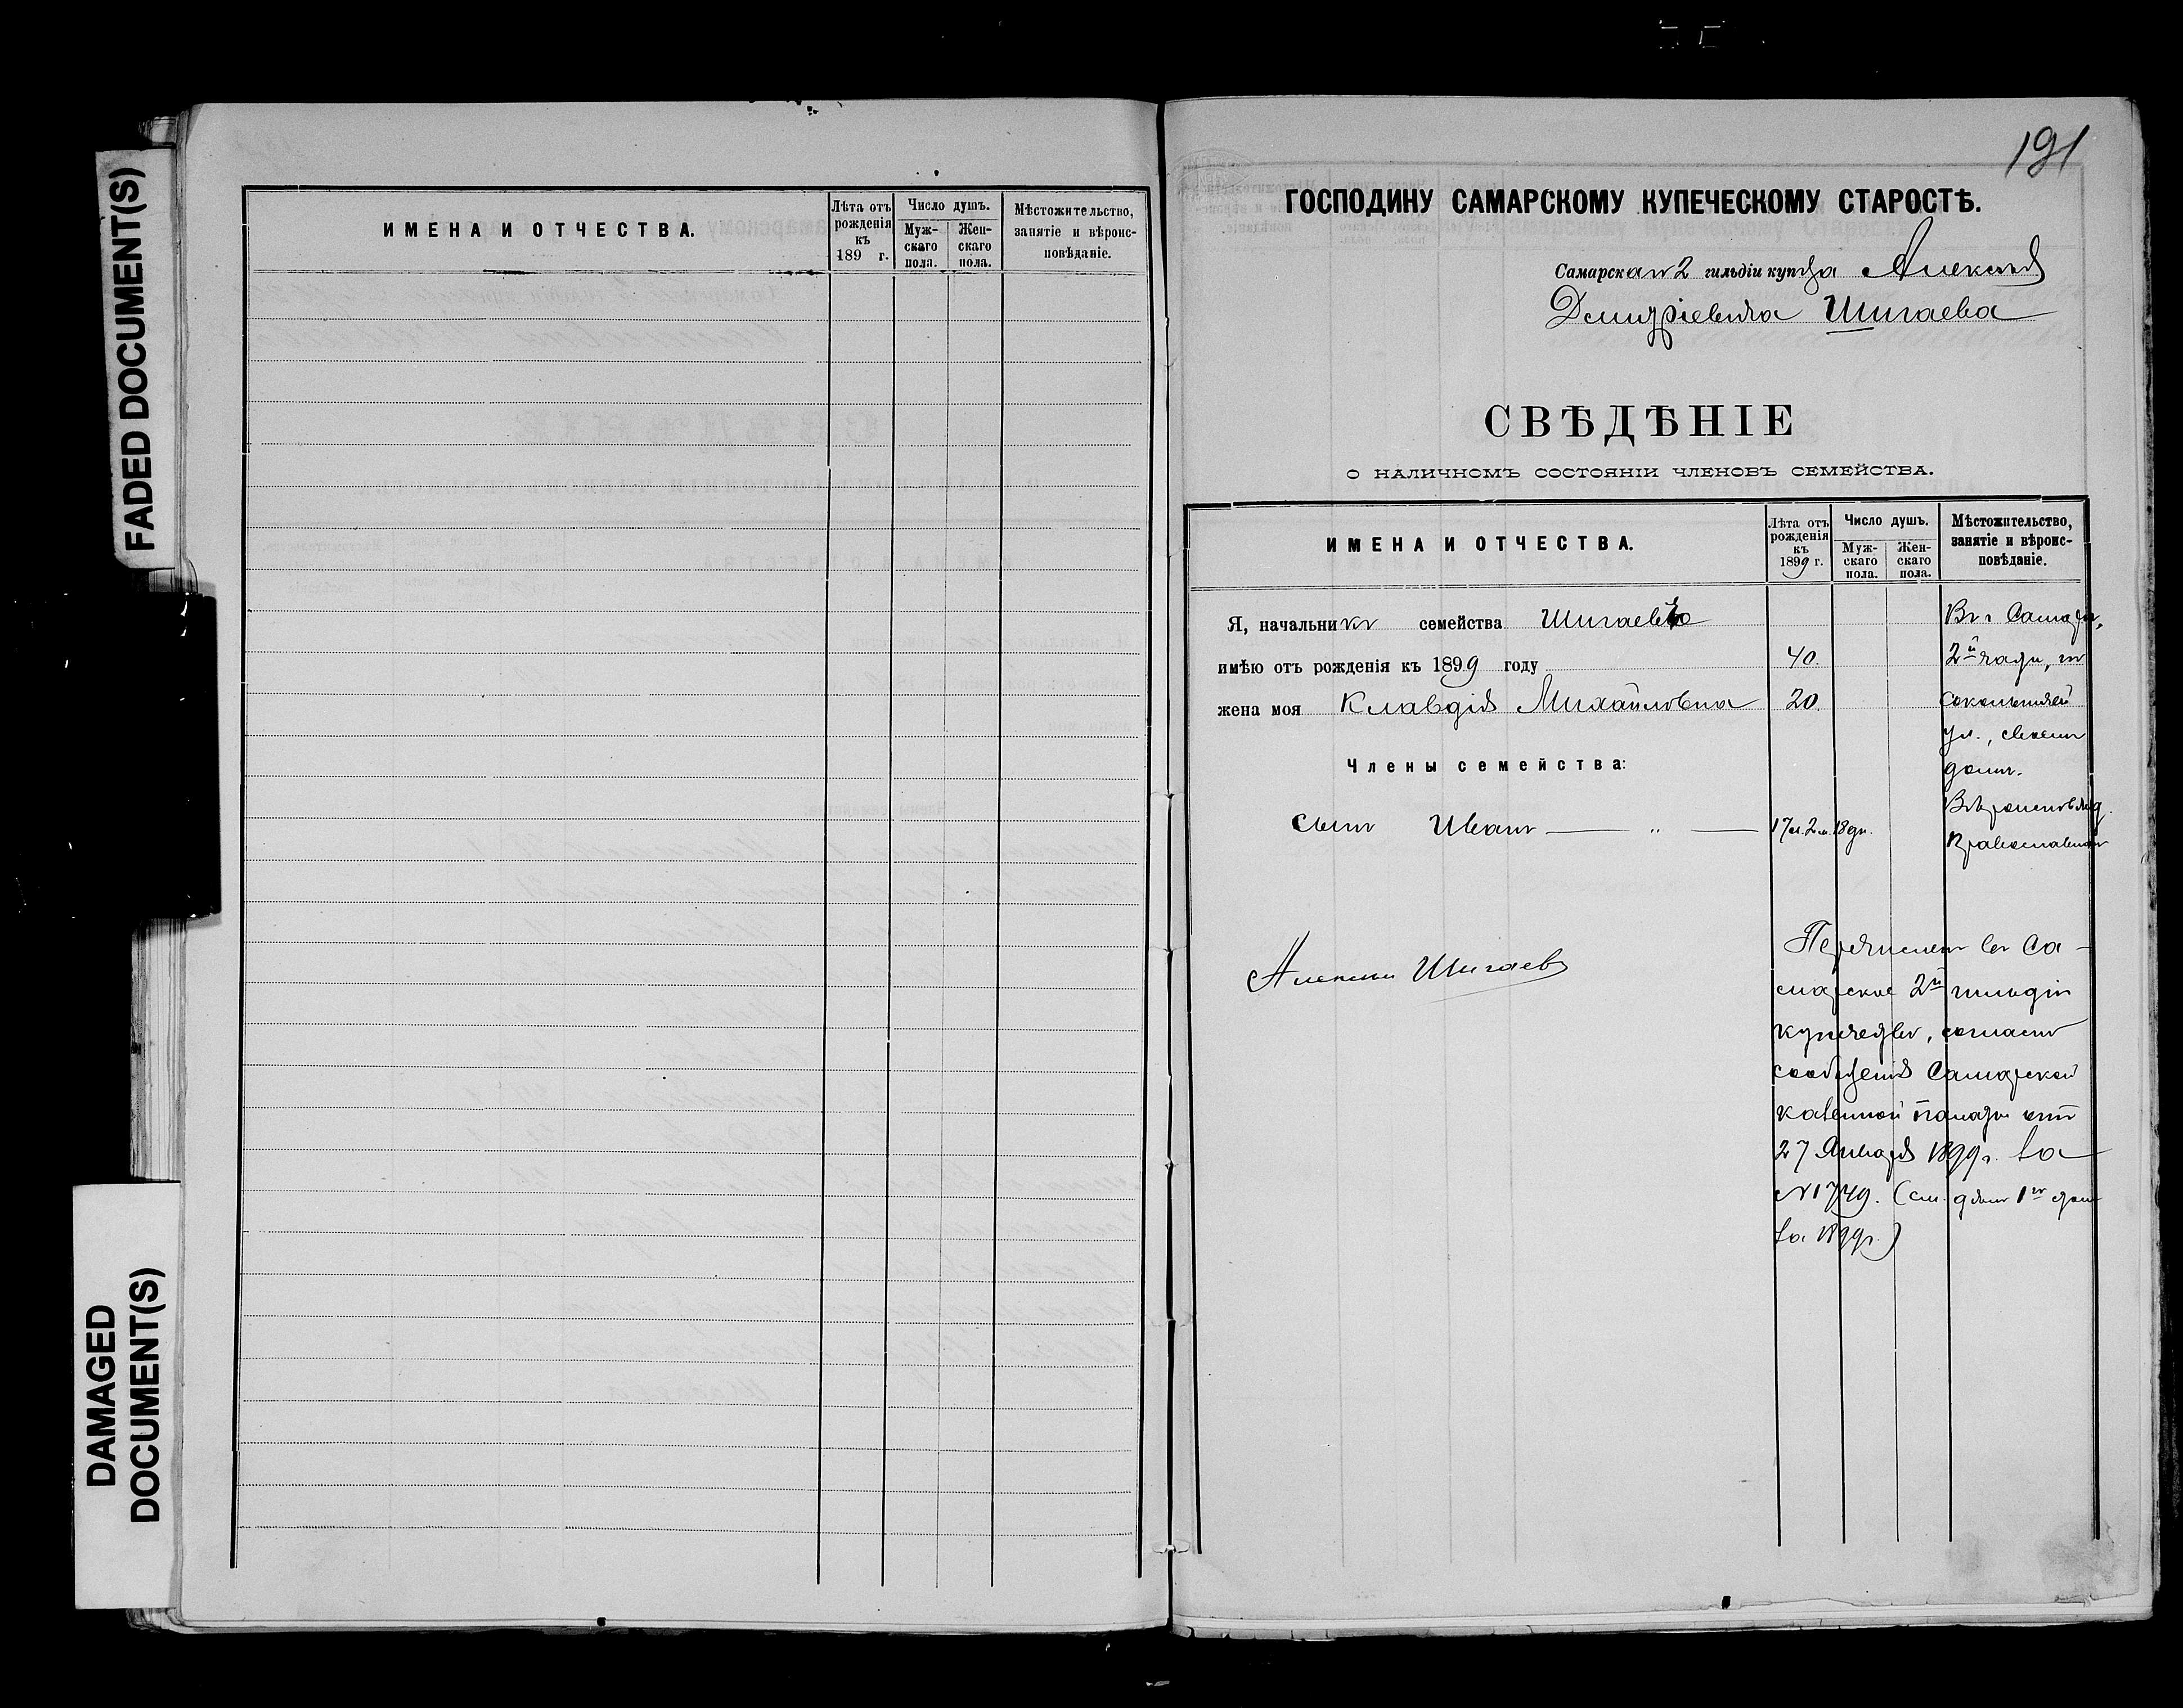 FADED DOCUMENT(S)
DAMAGED
DOCUMENT(S)
ИМЕНА И ОТЧЕСТВА.
Лѣта отъ рожденія къ 189 г.
Число душъ.
Муж-скаго пола.
Жен-скаго пола.
Мѣстожительство, занятіе и вѣроис-повѣданіе.
191
ГОСПОДИНУ САМАРСКОМУ КУПЕЧЕСКОМУ СТАРОСТѢ.
Самарскаго 2 гильдіи купца Алексѣя
Дмитріевича Шигаева
СВѢДѢНІЕ
О НАЛИЧНОМЪ СОСТОЯНІИ ЧЛЕНОВЪ СЕМЕЙСТВА.
ИМЕНА И ОТЧЕСТВА.
Лѣта отъ рожденія къ 1899 г.
Число душъ.
Муж-скаго пола.
Жен-скаго пола.
Мѣстожительство, занятіе и вѣроис-повѣданіе.
Я, начальникъ семейства Шигаевъ
имѣю отъ рожденія къ 1899 году 40.
жена моя Клавдія Михайловна 20.
Члены семейства:
Сынъ Иванъ — „ — 17 л. 2 м. 18 дн.
Въ г. Самарѣ,
2й части, по
сокольничей
ул., своемъ
домѣ.
Вѣроисповѣд.
Православнаго
Алексѣй Шигаевъ
Перечисленъ въ Са-
марское 2й гильдіи
купечество, согласно
сообщенія Самарской
казенной палаты отъ
27 Января 1899 г. за
№ 1749. (см. дѣло 1го стола
за 1899 г.)